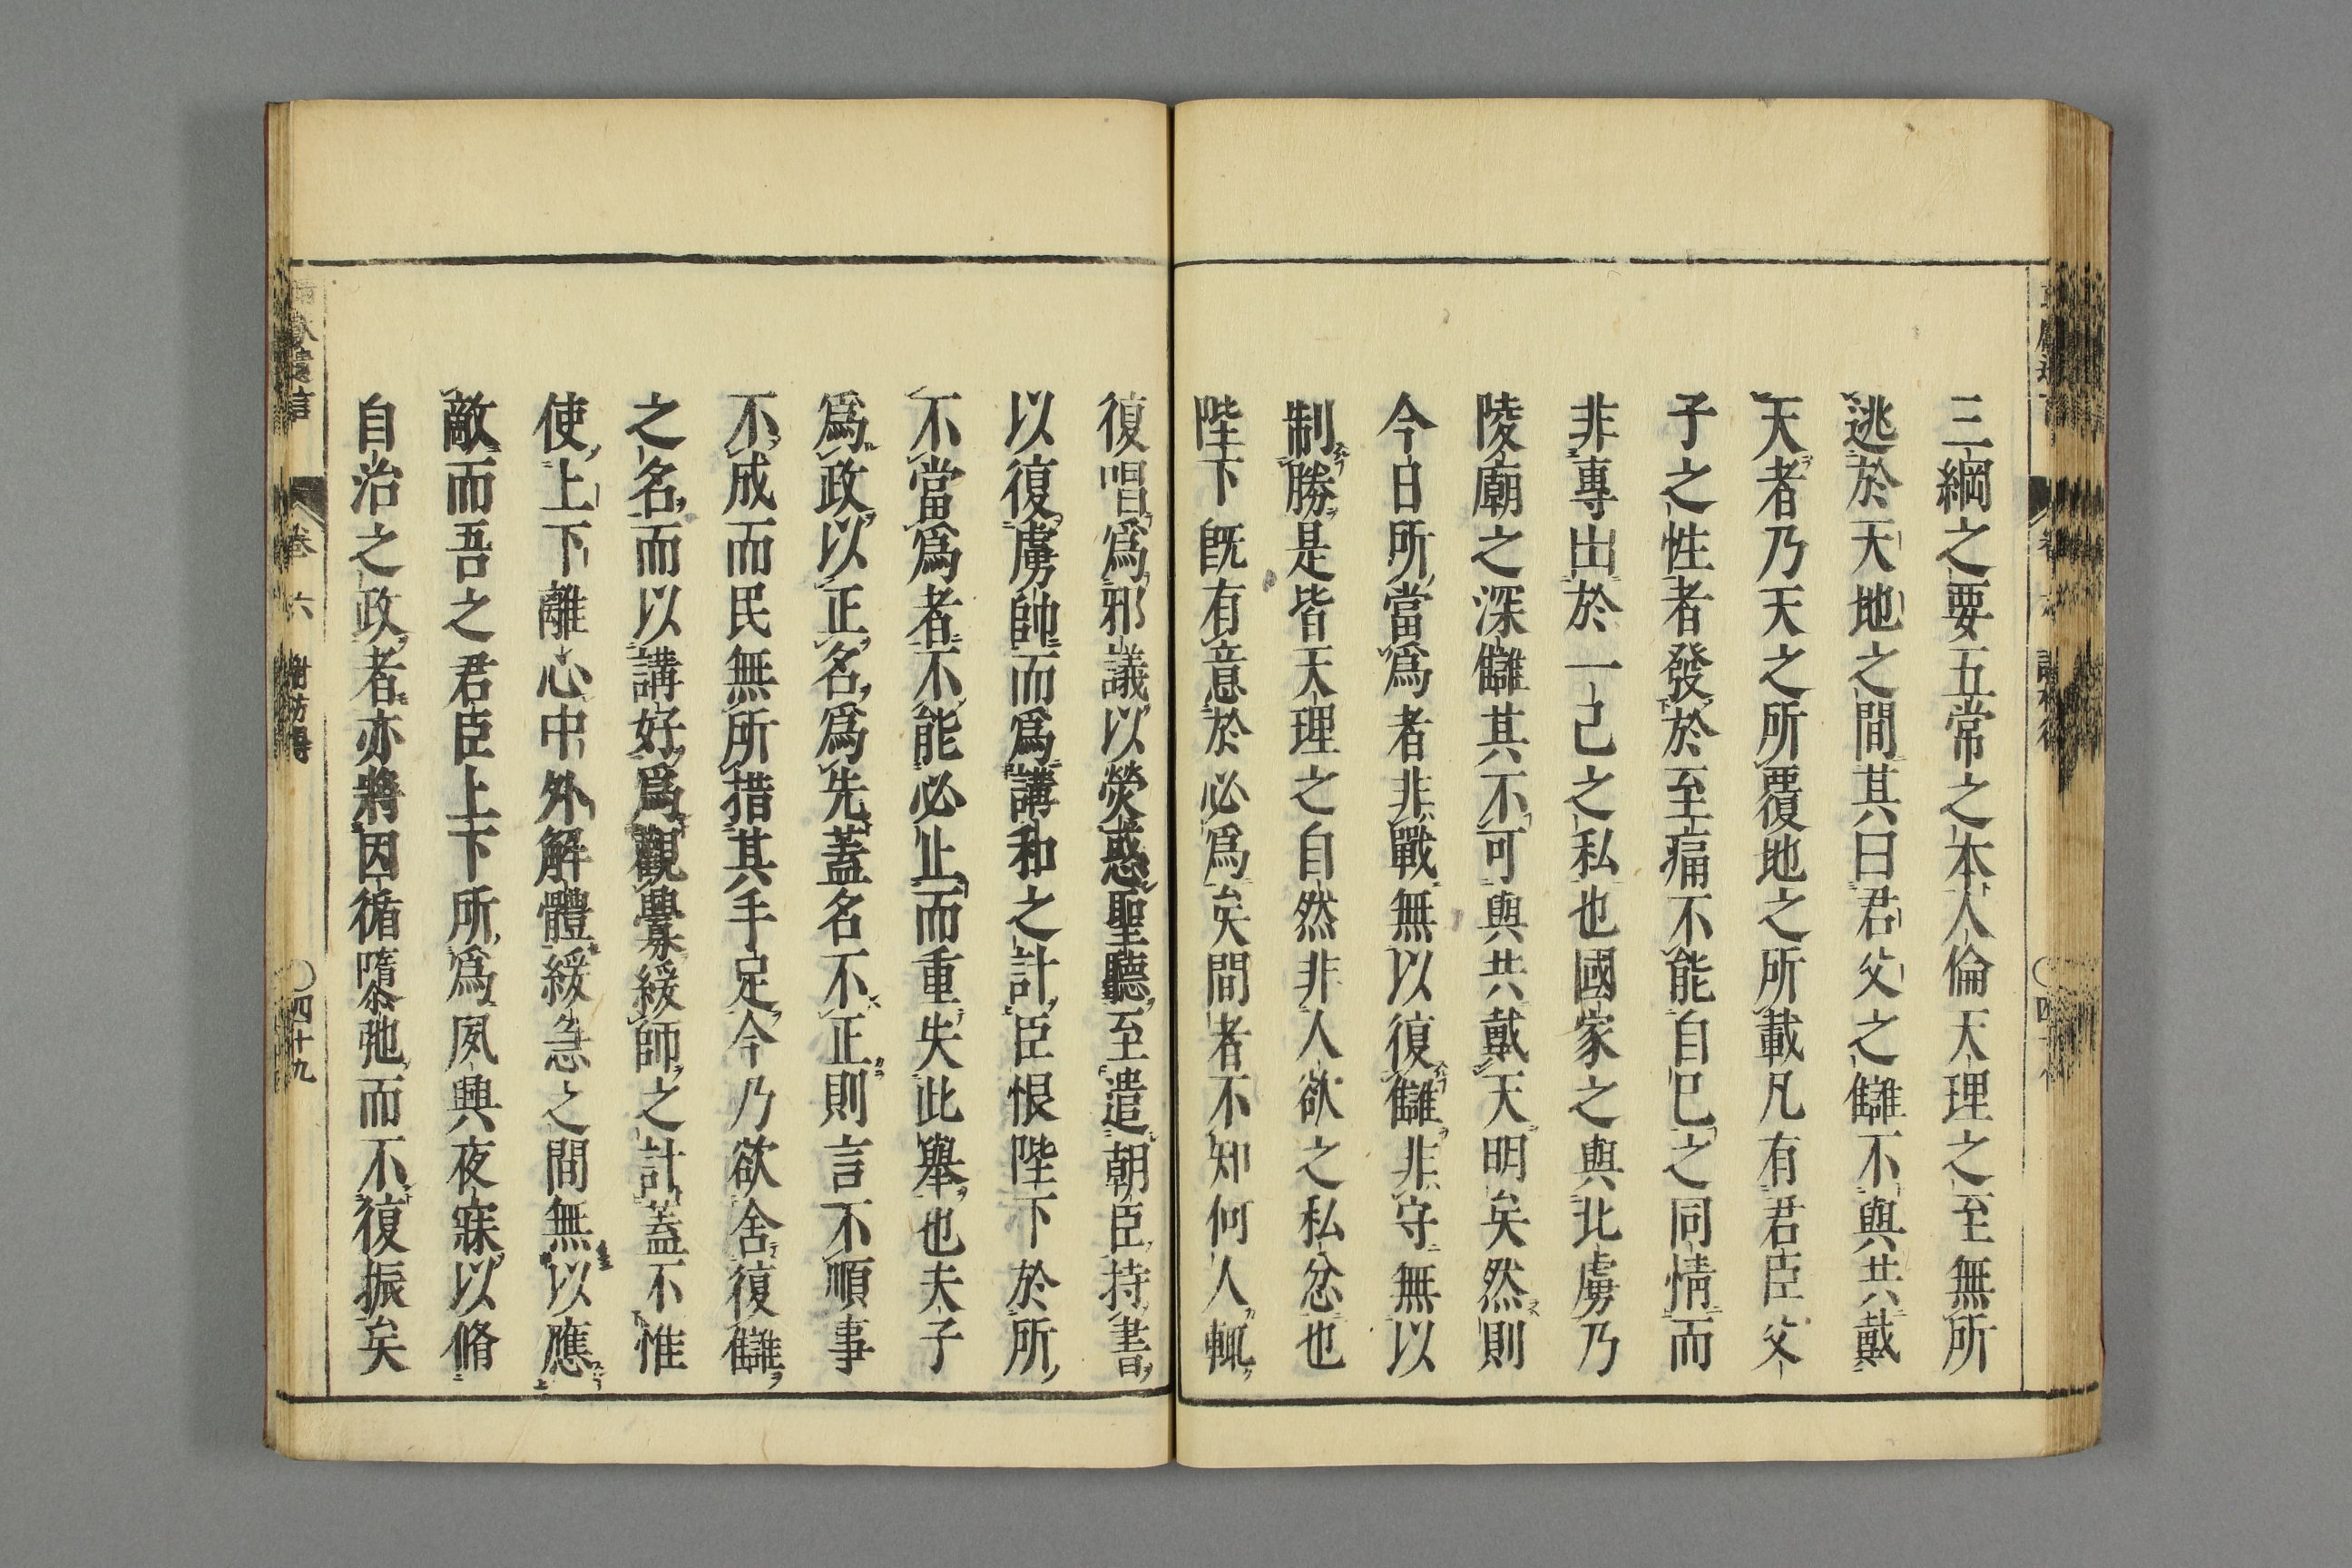 三綱之要五常之本人倫天理之至無所
逃於天地之間其曰君父之讎不與共戴
天者乃天之所覆地之所載凡有君臣父
子之性者發於至痛不能自已之同情而
非專出於一己之私也國家之與北虜乃
陵廟之深讎其不可與共戴天明矣然則
今日所當爲者非戰無以復讎非守無以
制勝是皆天理之自然非人欲之私忿也
陛下既有意於必爲矣間者不知何人輒
復唱爲邪議以熒惑聖聽至遣朝臣持書
以復虜帥而爲講和之計臣恨陛下於所
不當爲者不能必止而重失此舉也夫子
爲政以正名爲先蓋名不正則言不順事
不成而民無所措其手足今乃欲舍復讎
之名而以講好爲觀釁緩師之計蓋不惟
使上下離心中外解體緩急之間無以應
敵而吾之君臣上下所爲夙興夜寐以脩
自治之政者亦將因循隳弛而不復振矣
卷六 謝枋得 〇四十九